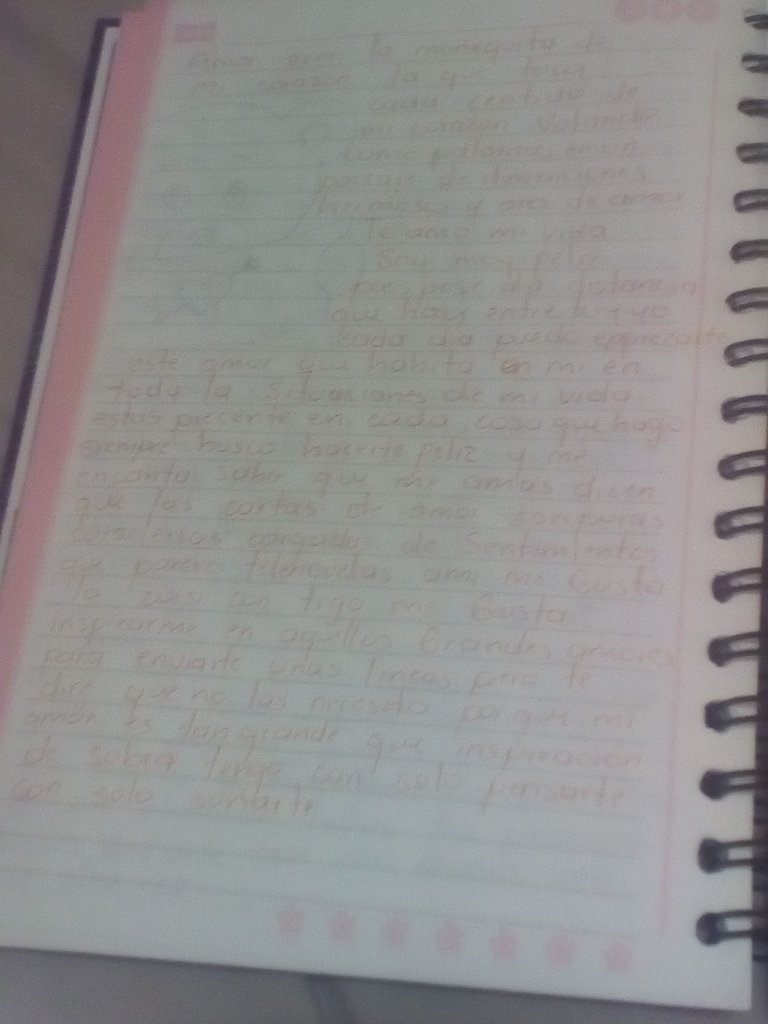 Amor eres la muñequita de
mi corazon la que toca
cada sentido de
mi corazon Volando
como palomas en un
paisaje de dimensiones
hermosas y de amor
Te amo mi vida
Soy muy feliz
pese a la distancia
que hay entre tu y yo
cada dia puedo expresarte
este amor que habita en mi en
toda la situaciones de mi vida
estas precente en cada cosa que hago
siempre busco hacerte feliz y me
encanta saber que me amas dicen
que las cartas de amor son puras
cursilerias cargadas de Sentimientos
que parece telenovelas ami me Gusta
lo cursi con tigo me Gusta
inspirarme en aquellos Grandes amores
para enviarte unas lineas pero te
dire que no las necesito por que mi
amor es tan grande que inspiración
de sobra tengo con solo pensarte
con solo soñarte